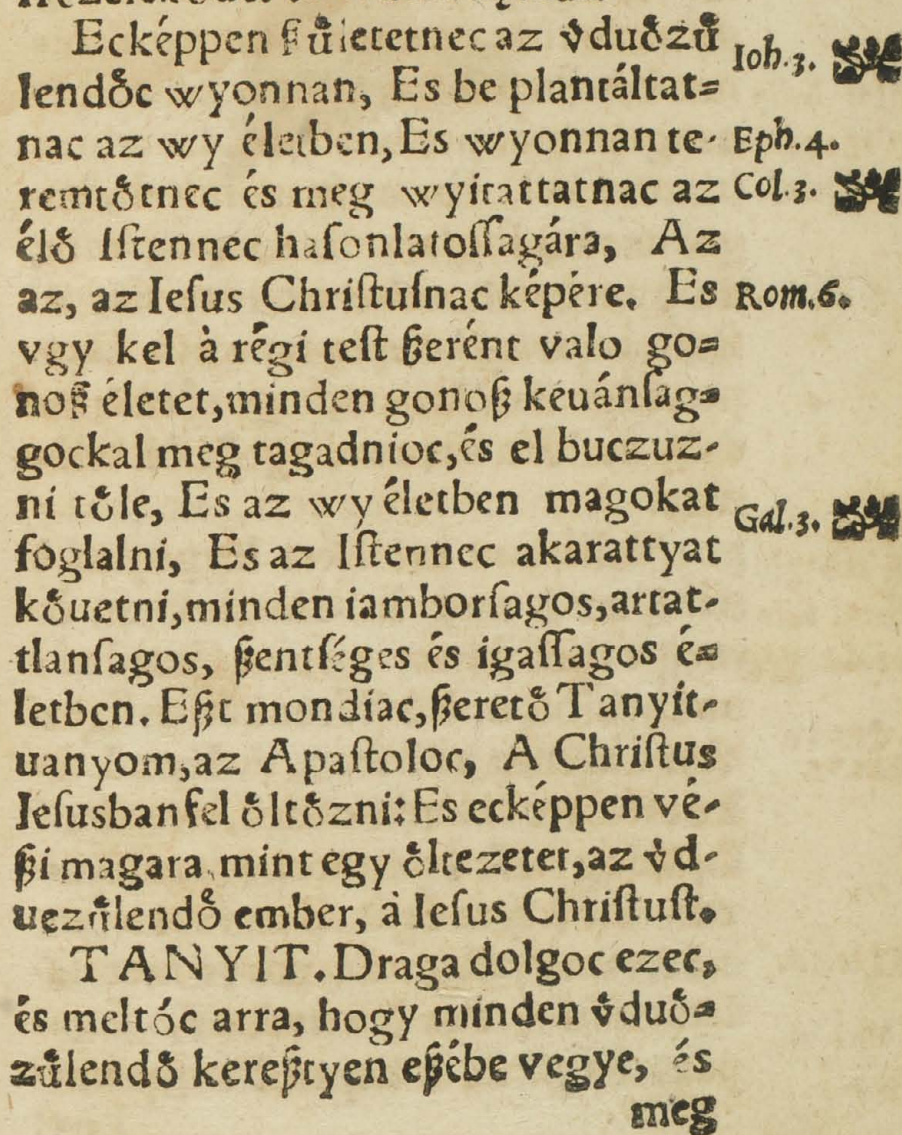 Ecképpen ßuͤletetnec az vͤduoͤzuͤ
lendoͤc wyonnan, Es be plantáltat⸗ Ioh.3.
nac az wy életben, Es wyonnan te- Eph.4.
remtoͤtnec és meg wyitattatnac az Col.3.
éloͤ Iſtennec haſonlatoſſagára, Az
az, az Ieſus Chriſtuſnac képére. Es Rom.6.
vgy kel à régi teſt ßerént valo go⸗
noß életet, minden gonoß keuánſag⸗
gockal meg tagadnioc, és el buczuz-
ni toͤle, Es az wy életben magokat
foglalni, Es az Iſtennec akarattyat Gal.3.
koͤuetni, minden iamborſagos, artat-
tlanſagos, ßentſéges és igaſſagos é⸗
letben. Eßt mondiac, ßeretoͤ Tanyit-
uanyom, az Apaſtoloc, A Chriſtus
Ieſusban fel oͤltoͤzni: Es ecképpen vé-
ßi magara, mint egy oͤltezetet, az vͤd-
uezuͤlendoͤ ember, à Ieſus Chriſtuſt.
TANYIT. Draga dolgoc ezec,
és meltóc arra, hogy minden vͤduoͤ⸗
zuͤlendoͤ kereßtyen eßébe vegye, és
meg